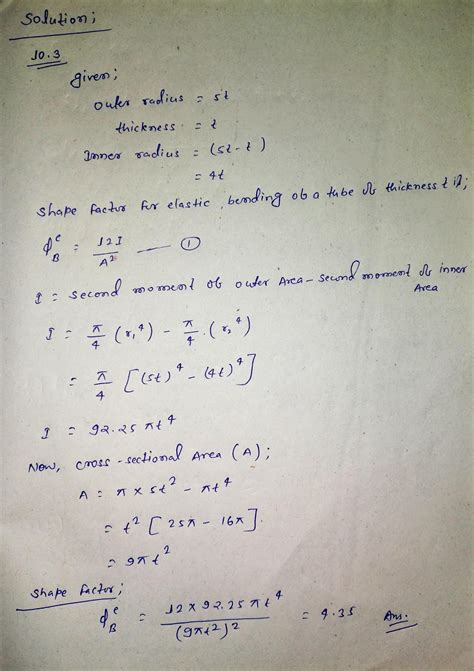 Solution;
10.3
given;
outer radius = 5t
thickness = t
Inner radius = (5t-t)
= 4t
Shape factor for elastic, bending of a tube of thickness t is,
ϕ_B^e = 12I/A² —— ①
I = Second moment of outer Area - Second moment of inner
Area
I = π/4 (r₁⁴) - π/4 . (r₂⁴)
= π/4 [(5t)⁴ - (4t)⁴]
I = 92.25 πt⁴
Now, cross-sectional Area (A);
A = π x 5t² - πt⁴
= t² [25π - 16π].
= 9πt²
Shape factor;
ϕ_B^e = 12 x 92.25 πt⁴/(9πt²)² = 4.35 Ans.